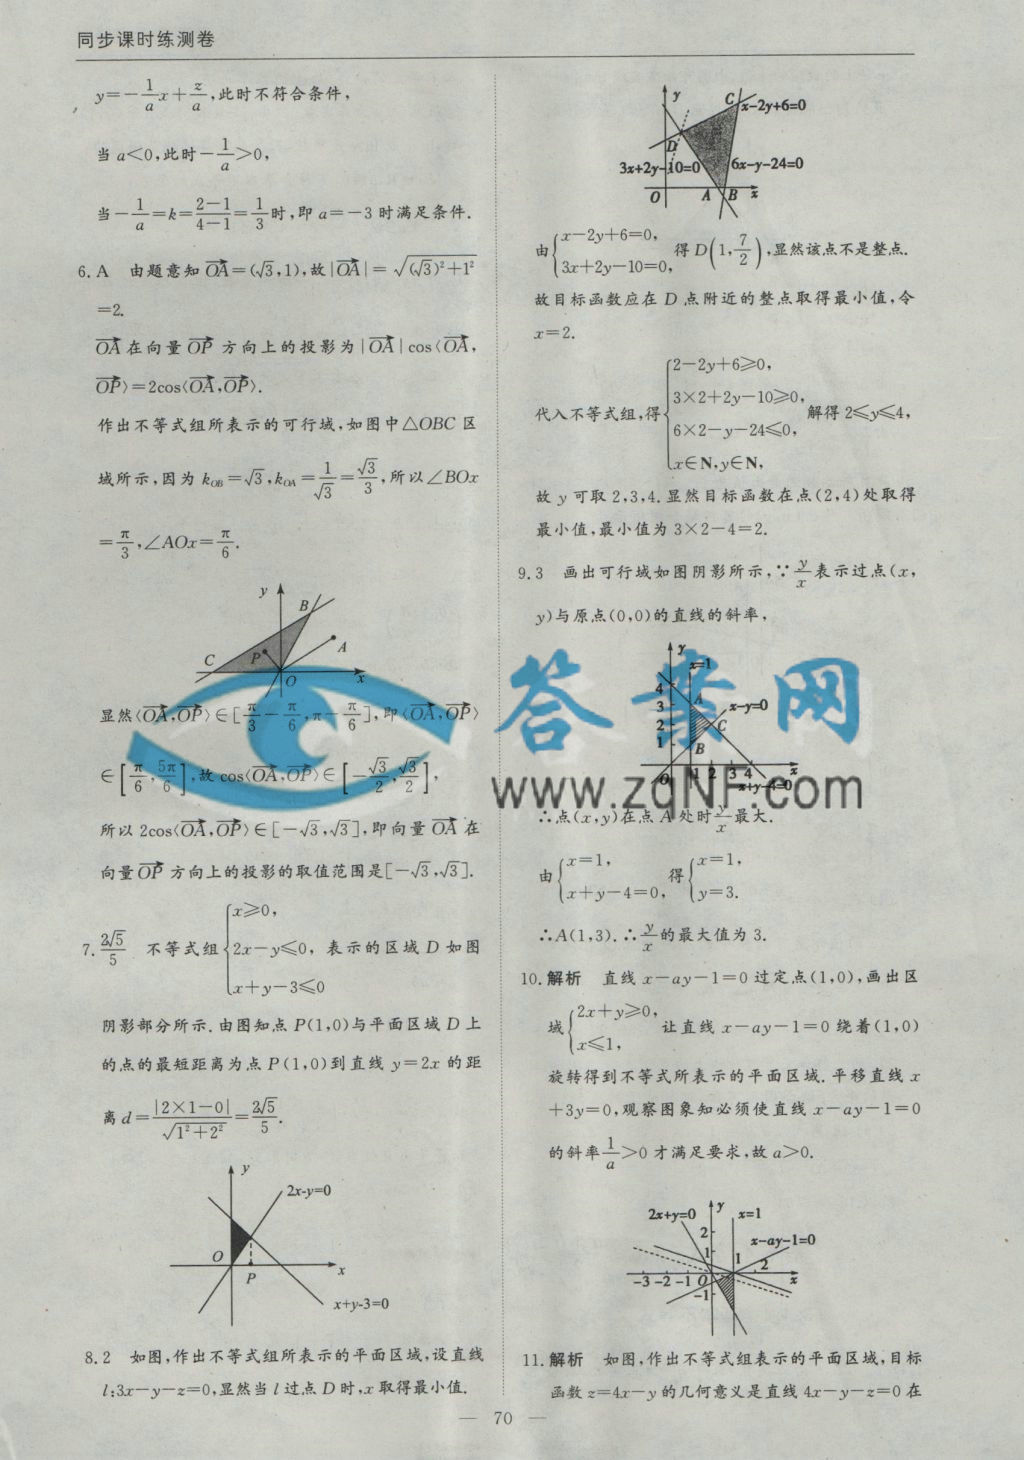 同步课时练测卷
y=-1/a x+z/a,此时不符合条件,
当 a<0,此时-1/a>0,
当-1/a=k=(2-1)/(4-1)=1/3时,即 a=-3 时满足条件.
6. A 由题意知OA→=(√3,1),故|OA→|=√((√3)²+1²)
=2.
OA→在向量 OP→ 方向上的投影为|OA→|cos⟨OA→,
OP→⟩=2cos⟨OA→,OP→⟩.
作出不等式组所表示的可行域,如图中△OBC 区
域所示,因为 k_OB=√3,k_OA=1/√3=√3/3,所以∠BOx
=π/3,∠AOx=π/6.
y
B
A
P
C
O
x
显然⟨OA→,OP→⟩∈[π/3-π/6,π-π/6],即⟨OA→,OP→⟩
∈[π/6,5π/6],故 cos⟨OA→,OP→⟩∈[-√3/2,√3/2],
所以 2cos⟨OA→,OP→⟩∈[-√3,√3],即向量 OA→ 在
向量OP→ 方向上的投影的取值范围是[-√3,√3].
7. 2√5/5 不等式组{x≥0, 2x-y≤0, x+y-3≤0 表示的区域 D 如图
阴影部分所示.由图知点 P(1,0)与平面区域 D 上
的点的最短距离为点 P(1,0)到直线 y=2x 的距
离 d=|2×1-0|/√(1²+2²)=2√5/5.
y
2x-y=0
O
P
x
x+y-3=0
8. 2 如图,作出不等式组所表示的平面区域,设直线
l:3x-y-z=0,显然当 l 过点 D 时,z 取得最小值.
y
C
x-2y+6=0
D
3x+2y-10=0
6x-y-24=0
O
A
B
x
由{x-2y+6=0, 3x+2y-10=0, 得 D(1,7/2),显然该点不是整点.
故目标函数应在 D 点附近的整点取得最小值,令
x=2.
代入不等式组,得{2-2y+6≥0, 3×2+2y-10≥0, 6×2-y-24≤0, x∈N,y∈N, 解得 2≤y≤4,
故 y 可取 2,3,4.显然目标函数在点(2,4)处取得
最小值,最小值为 3×2-4=2.
9. 3 画出可行域如图阴影所示,∵y/x表示过点(x,
y)与原点(0,0)的直线的斜率,
y
x=1
4
3
2
1
A
x-y=0
C
B
O
1 2 3 4
x
x+y-4=0
答案网
www.zqNF.com
∴点(x,y)在点 A 处时y/x最大.
由{x=1, x+y-4=0, 得{x=1, y=3.
∴A(1,3).∴y/x的最大值为 3.
10. 解析 直线 x-ay-1=0 过定点(1,0),画出区
域{2x+y≥0, x≤1, 让直线 x-ay-1=0 绕着(1,0)
旋转得到不等式所表示的平面区域.平移直线 x
+3y=0,观察图象知必须使直线 x-ay-1=0
的斜率1/a>0 才满足要求,故 a>0.
2x+y=0
y
x=1
2
1
x-ay-1=0
-3 -2 -1 O 1 2
x
-1
11. 解析 如图,作出不等式组表示的平面区域,目标
函数 z=4x-y 的几何意义是直线 4x-y-z=0 在
— 70 —